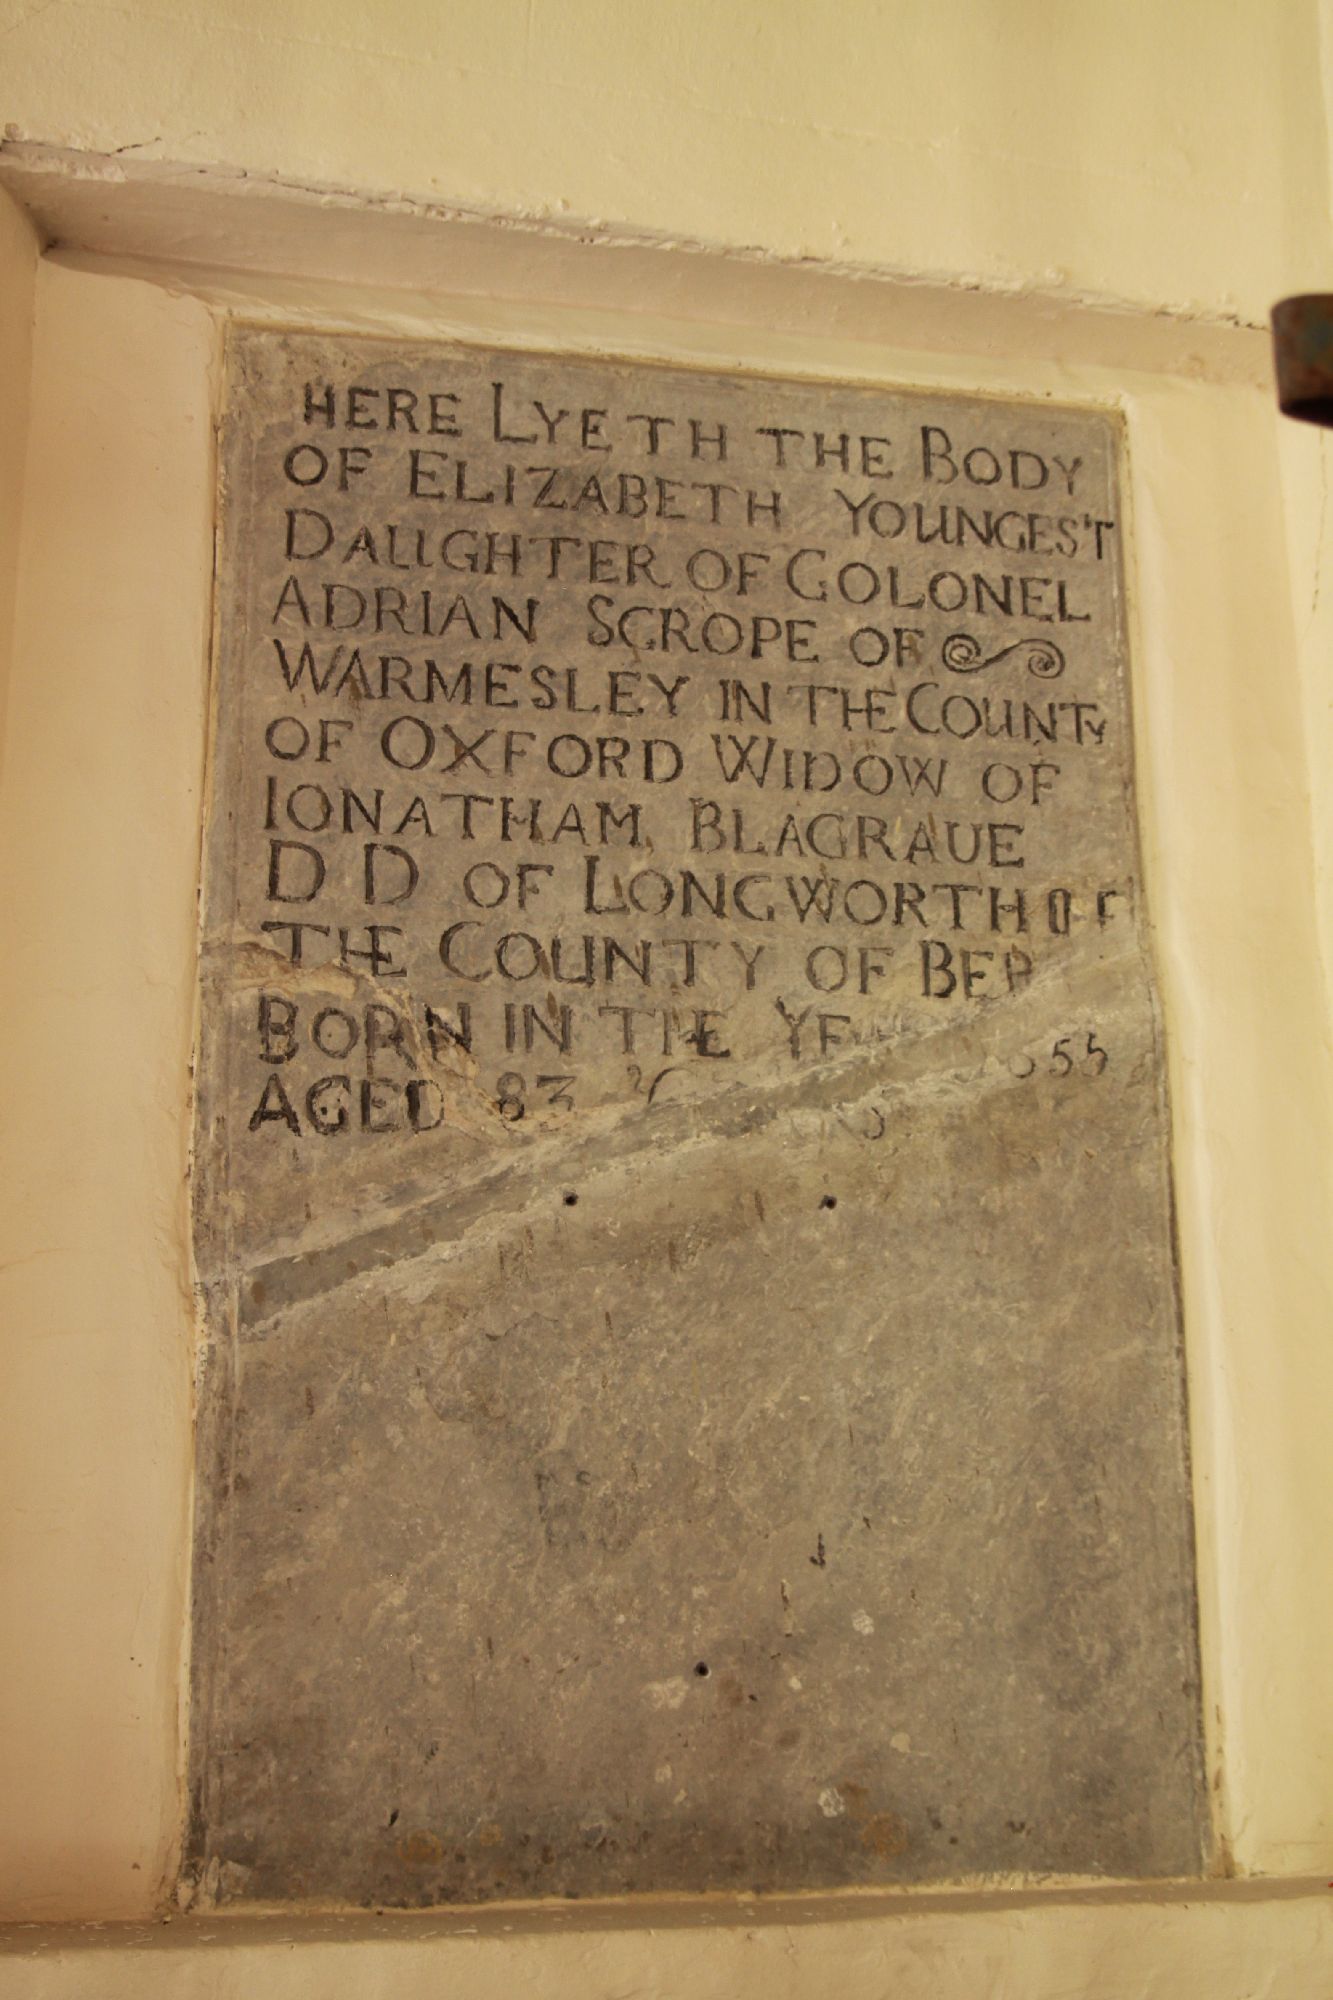 HERE LYETH THE BODY
OF ELIZABETH YOUNGEST
DAUGHTER OF COLONEL
ADRIAN SCROPE OF
WARMESLEY IN THE COUNTY
OF OXFORD WIDOW OF
IONATHAM BLAGRAUE
D D OF LONGWORTH OF
THE COUNTY OF BER
BORN IN THE YE 655
AGED 83